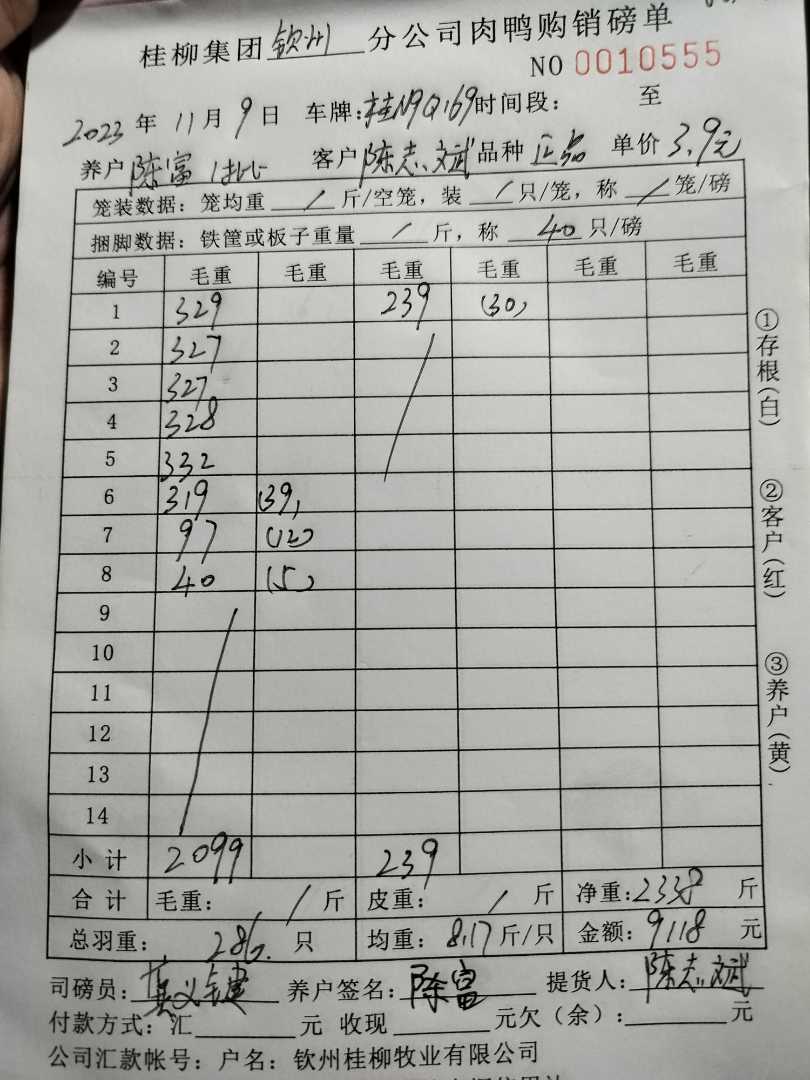 桂柳集团钦州分公司肉鸭购销磅单
NO 0010555
2023年11月9日 车牌:桂N9Q169 时间段: 至
养户 陈富 客户 陈志文斌 品种 正品 单价 3.9元
笼装数据: 笼均重 / 斤/空笼, 装 / 只/笼, 称 / 笼/磅
捆脚数据: 铁筐或板子重量 / 斤, 称 40 只/磅
编号 毛重 毛重 毛重 毛重 毛重 毛重
1 329 239 (30)
2 327
3 327
4 328
5 332
6 319 (39)
7 97 (12)
8 40 (5)
9
10
11
12
13
14
小计 2099 239
合计 毛重: / 斤 皮重: / 斤 净重:2338 斤
总羽重: 286 只 均重: 8.17斤/只 金额: 9118 元
司磅员: 养户签名: 陈富 提货人: 陈志文斌
付款方式: 汇 元 收现 元欠(余): 元
公司汇款帐号: 户名: 钦州桂柳牧业有限公司
①存根(白)
②客户(红)
③养户(黄)